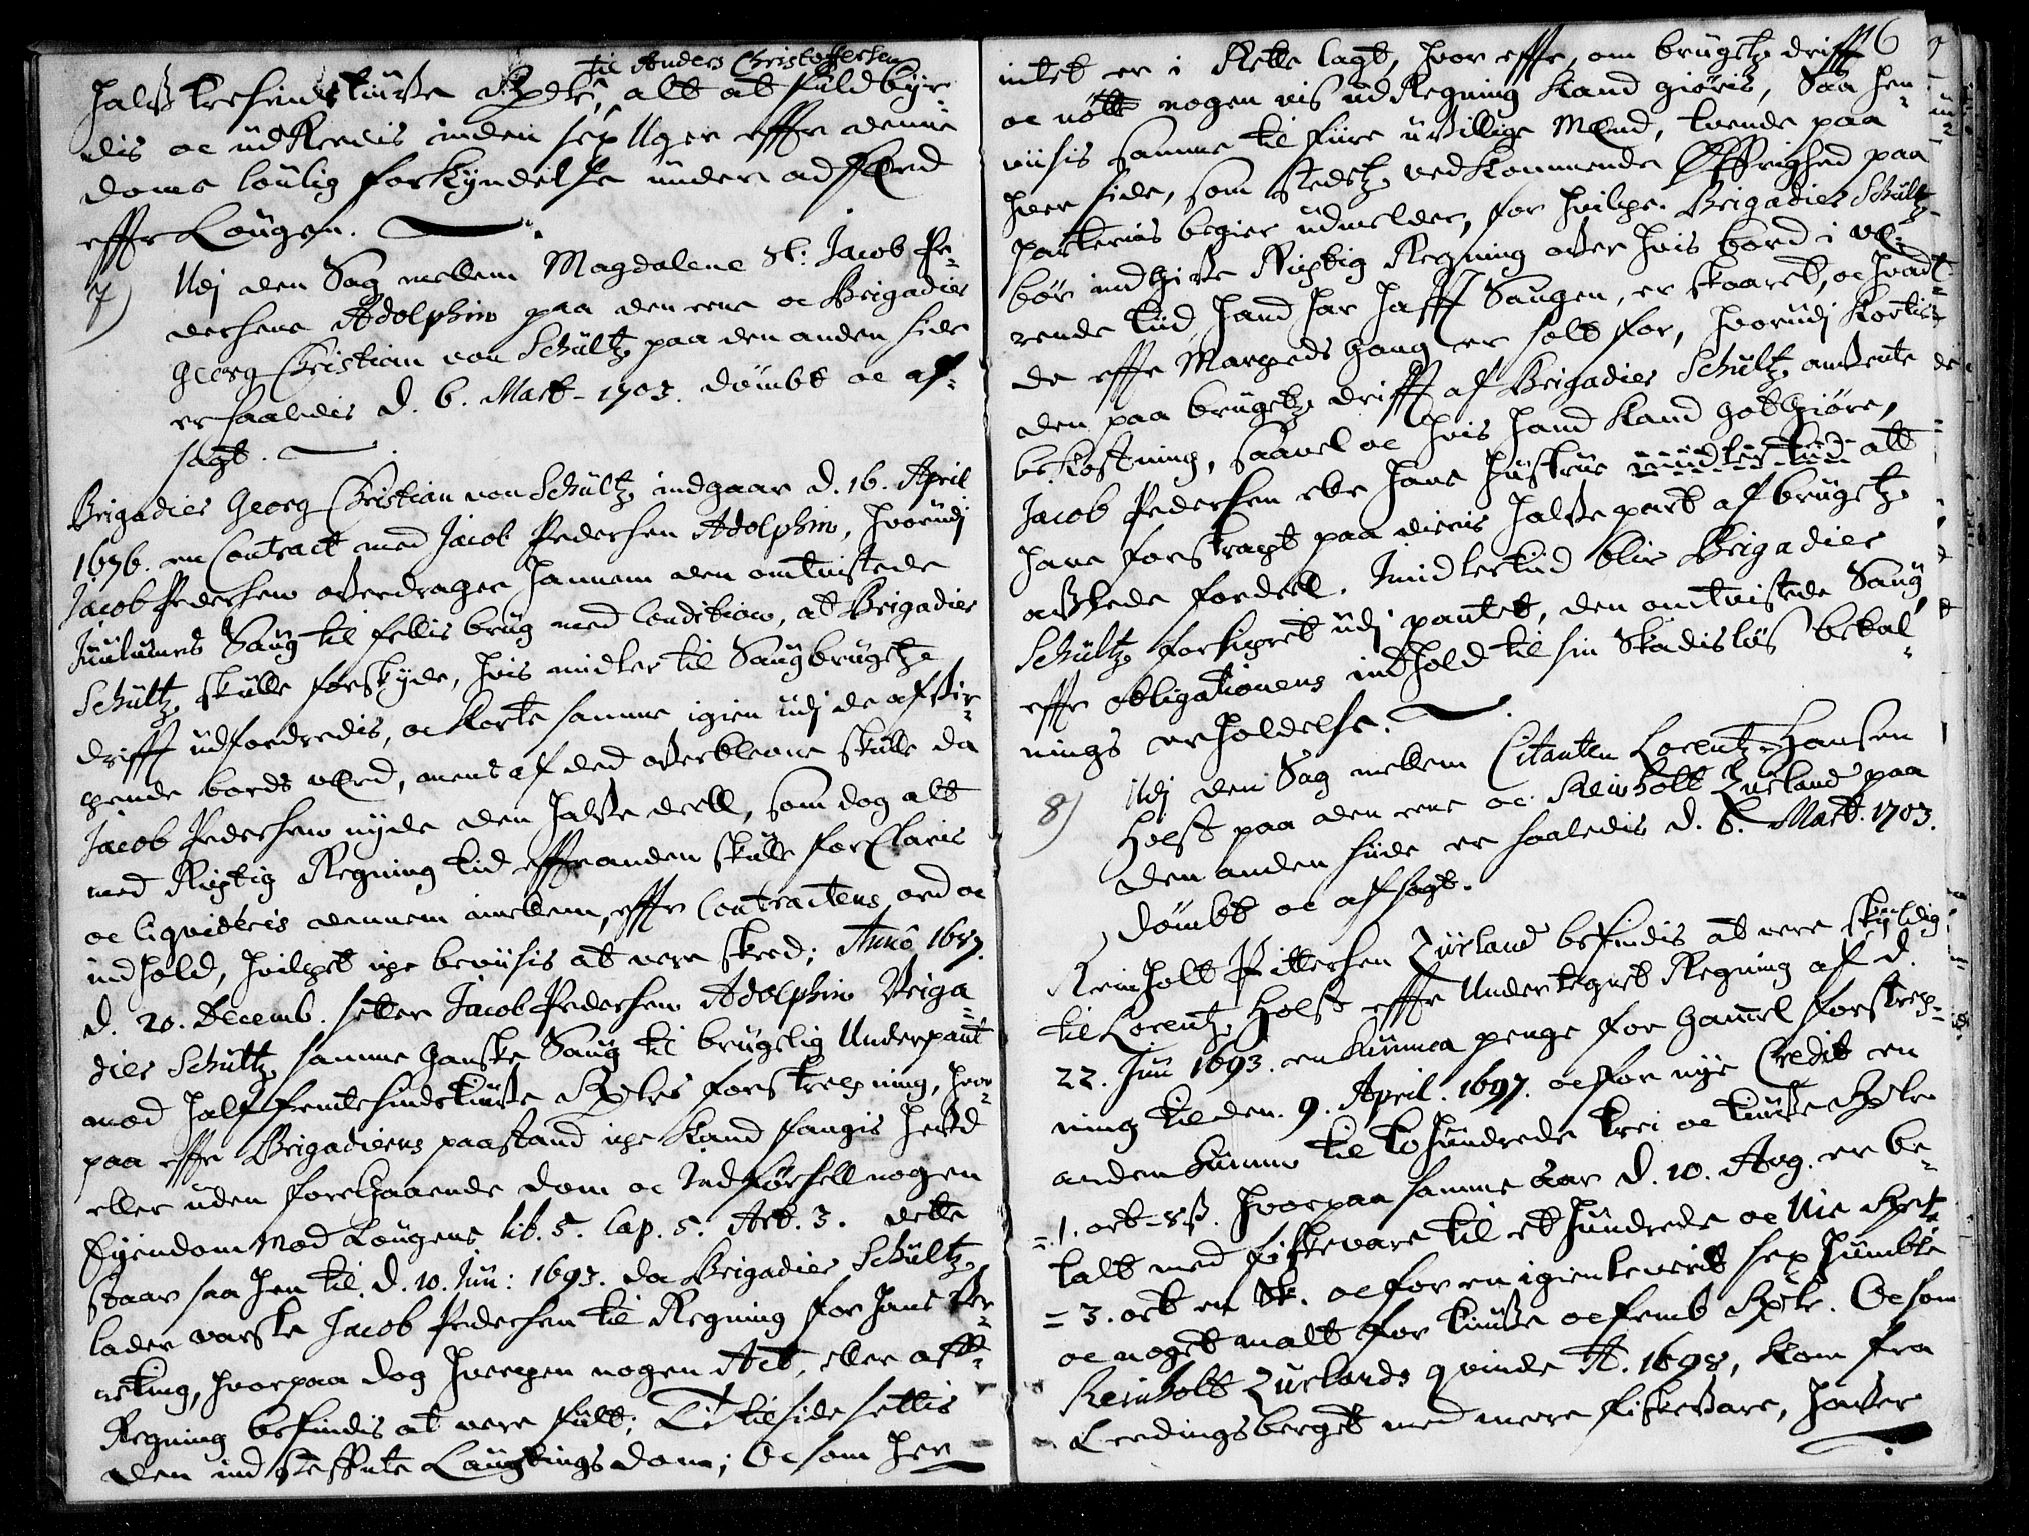 til Anders Christoffersen
halftresindstiuffe Rdr, alt at fuldbyr-
dis oc udReedis inden sex Uger effter denne
doms loulig forkyndelse under adferd
effter Lougen.
7) Udj den Sag mellem Magdalene Sl: Jacob Pe-
dersens Adolphin paa den eene oc Brigadier
Georg Christian von Schultz paa den anden side
er saaledis d. 6. Mart. 1703. dømbt oc af-
sagt.
Brigadier Georg Christian von Schultz indgaar d. 16. April
1676. en Contract med Jacob Pedersen Adolphin, hvorudj
Jacob Pedersen offverdrager hannem den omtvistede
Saug til fellis brug med Condition, at Brigadier
Schultz skulle forskyde, hvis midler til Saugbrugetz
drifft udfordredis, oc korte samme igien udj de afvir-
chende bords verd, mens af ded offverblevne skulle da
Jacob Pedersen nyde den halfve deell, som dog alt
med Rigtig Regning tid effter anden skulle forClaris
oc liqvideris dennem imellem, effter Contractens ord oc
indhold, hvilchet iche beviisis at vere skeed; Anno 1687.
d. 20. Decemb. setter Jacob Pedersen Adolphin Briga-
dier Schultz samme gandske Saug til brugelig Underpant
mod half femtesindstiuffe Rdrs forstrechning, hvor-
paa effter Brigadierens paastand iche kand fangis hefd
eller uden foregaaende dom oc Indførsell nogen
Eyendom mod Lougens lib. 5. Cap. 5. Art. 3. dette
staar saa hen til d. 10. Jun: 1693. da Brigadier Schultz
lader varsle Jacob Pedersen til Regning for hans
retning, hvorpaa dog hverchen nogen Act, eller aff-
Regning befindis at vere fult; Ti tilside settis
den ind Steffnte Laugtings dom; Oc som her
116
intet er i Rette lagt, hvor effter, om brugetz drifft
oc nøtte nogen vis udRegning kand giøris, Saa hen-
viisis samme til fiire uvillige Mend, tvende paa
hver side, som stedetz vedkommende Øffrighed paa
parternis begier udmelder, for hvilche Brigadier Schultz
bør indgifve Rigtig Regning over hvis bord i ve-
rende tiid hand har hafft Saugen, er skaaret, oc hvad
de effter Marchedsgang er solt for, hvorudj kortis
den paa brugetz drifft af Brigadier Schultz anvente
bekostning, saavel oc hvis hand kand gotgiøre,
Jacob Pedersen eller hans hustrue imidlertiid alt
have forstragt paa dieris halfve part af brugetz
afflede fordeel. Imidlertiid blir Brigadier
Schultz forsichret udj pantet, den omtvistede Saug,
effter obligationens indhold til sin Skadisløs betal-
nings erholdelse.
8) Udj den Sag mellem Citanten Lorentz Hansen
Holst paa den eene oc Reinholt Zurland paa
den anden side er saaledis d. 6. Mart. 1703.
dømbt oc afsagt.
Reinholt Pittersen Zurland befindis at vere skyldig
til Lorentz Holst effter Undertegnet Regning af d.
22. Jun 1693. en Summa penge for gammel forstrech-
ning til den 9. April. 1697. oc for nye Credit en
anden Summa til tohundrede trei oc tiuffe Rdr
= 1. ort - 8 ß. hvorpaa samme aar d. 10. Aug. er be-
talt med fiskevare til et hundrede oc Nie Rdr
= 3. ort en Sk. oc for en igienleverit sex
oc noget malt for tiuffe oc femb Rdr. Oc som
Reinholt Zurlands qvinde A. 1698, kom fra
Leedingsberget med mere fiskevare, haver